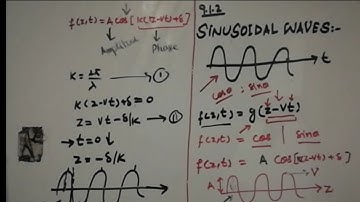 f(z,t) = A cos[k(z-vt)+δ]
Amplitude
Phase
K = 2π/λ — ①
K(z-vt)+δ = 0
z = vt - δ/k — ⑪
→ t=0
z = -δ/k
9.1.2
SINUSOIDAL WAVES:-
t
cosθ ; sinθ
f(z,t) = g(z-vt)
f(z,t) = cos | sinθ
f(z,t) = A cos[k(z-vt)+δ]
A
V
z